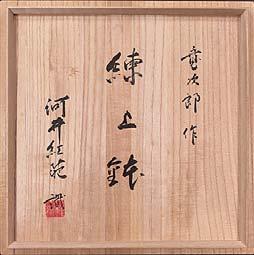 寛次郎作
練上鉢
河井紅葩識